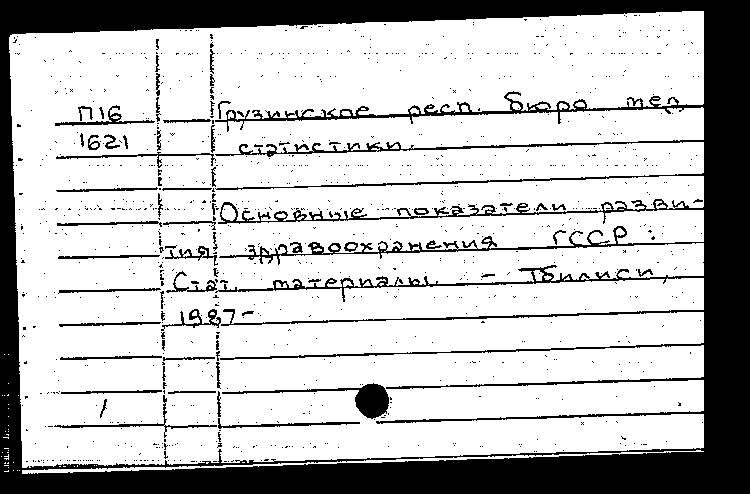 П16 Грузинское респ. бюро мед.
1621 статистики.
Основные показатели разви-
тия здравоохранения ГССР:
Стат. материалы. - Тбилиси,
1987-
1